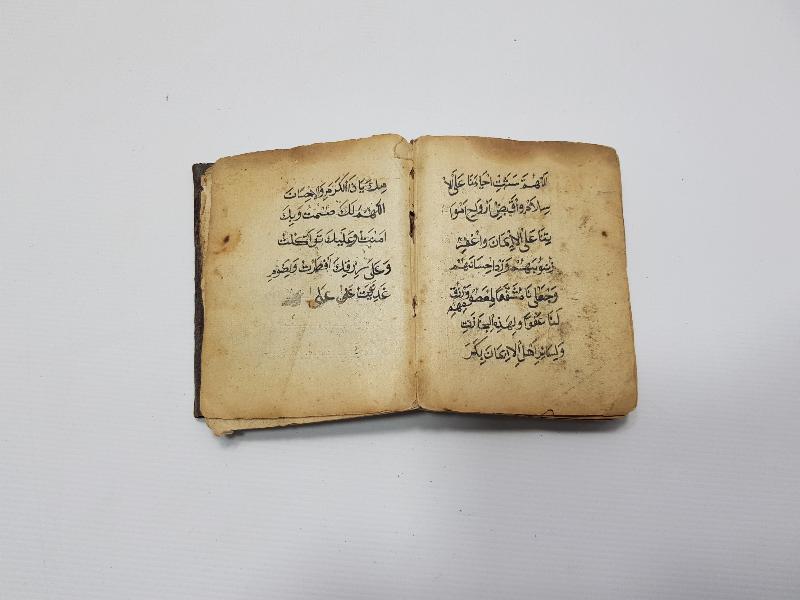 اللهم ثبت احياءنا على الا
سلام واقبض ارواح اموا
تنا على الايمان واغفر
ذنوبهم وزد احسانهم
وجعلنا مشفعا وارزق
لنا عفوا ولهذه الجنازت
ولسائر اهل الايمان بكر
مك يا ذا الكرم والاحسان
اللهم لك صمت وبك
امنت وعليك توكلت
وعلى رزقك افطرت ولصوم
غد نويت